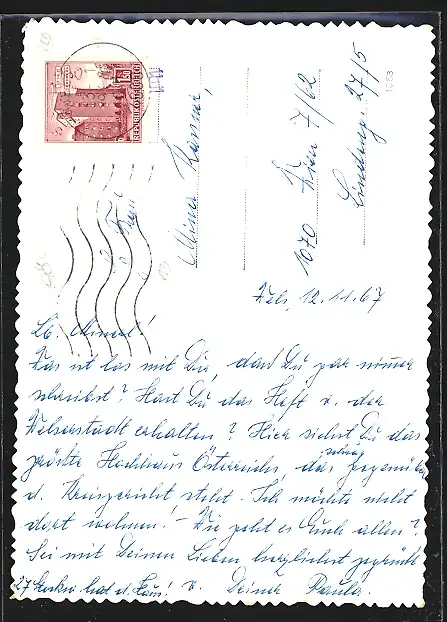 REPUBLIK ÖSTERREICH
1.50
Frau
Minna
1070 Wien 7/62
27/5
1963
Wels, 12.11.67
Lb. Minna!
Was ist los mit Dir, daß Du gar nimmer
schreibst? Hast Du das Heft v. der
Welserstadt erhalten? Hier siehst Du das
größte Hochhaus Österreichs, das schräg gegenüber
d. Kreisgericht steht. Ich möchte nicht
dort wohnen! – Wie geht es Euch allen?
Sei mit Deinen Lieben herzlichst gegrüßt
v. Deiner Paula.
27 Stockw. hat d. Haus!